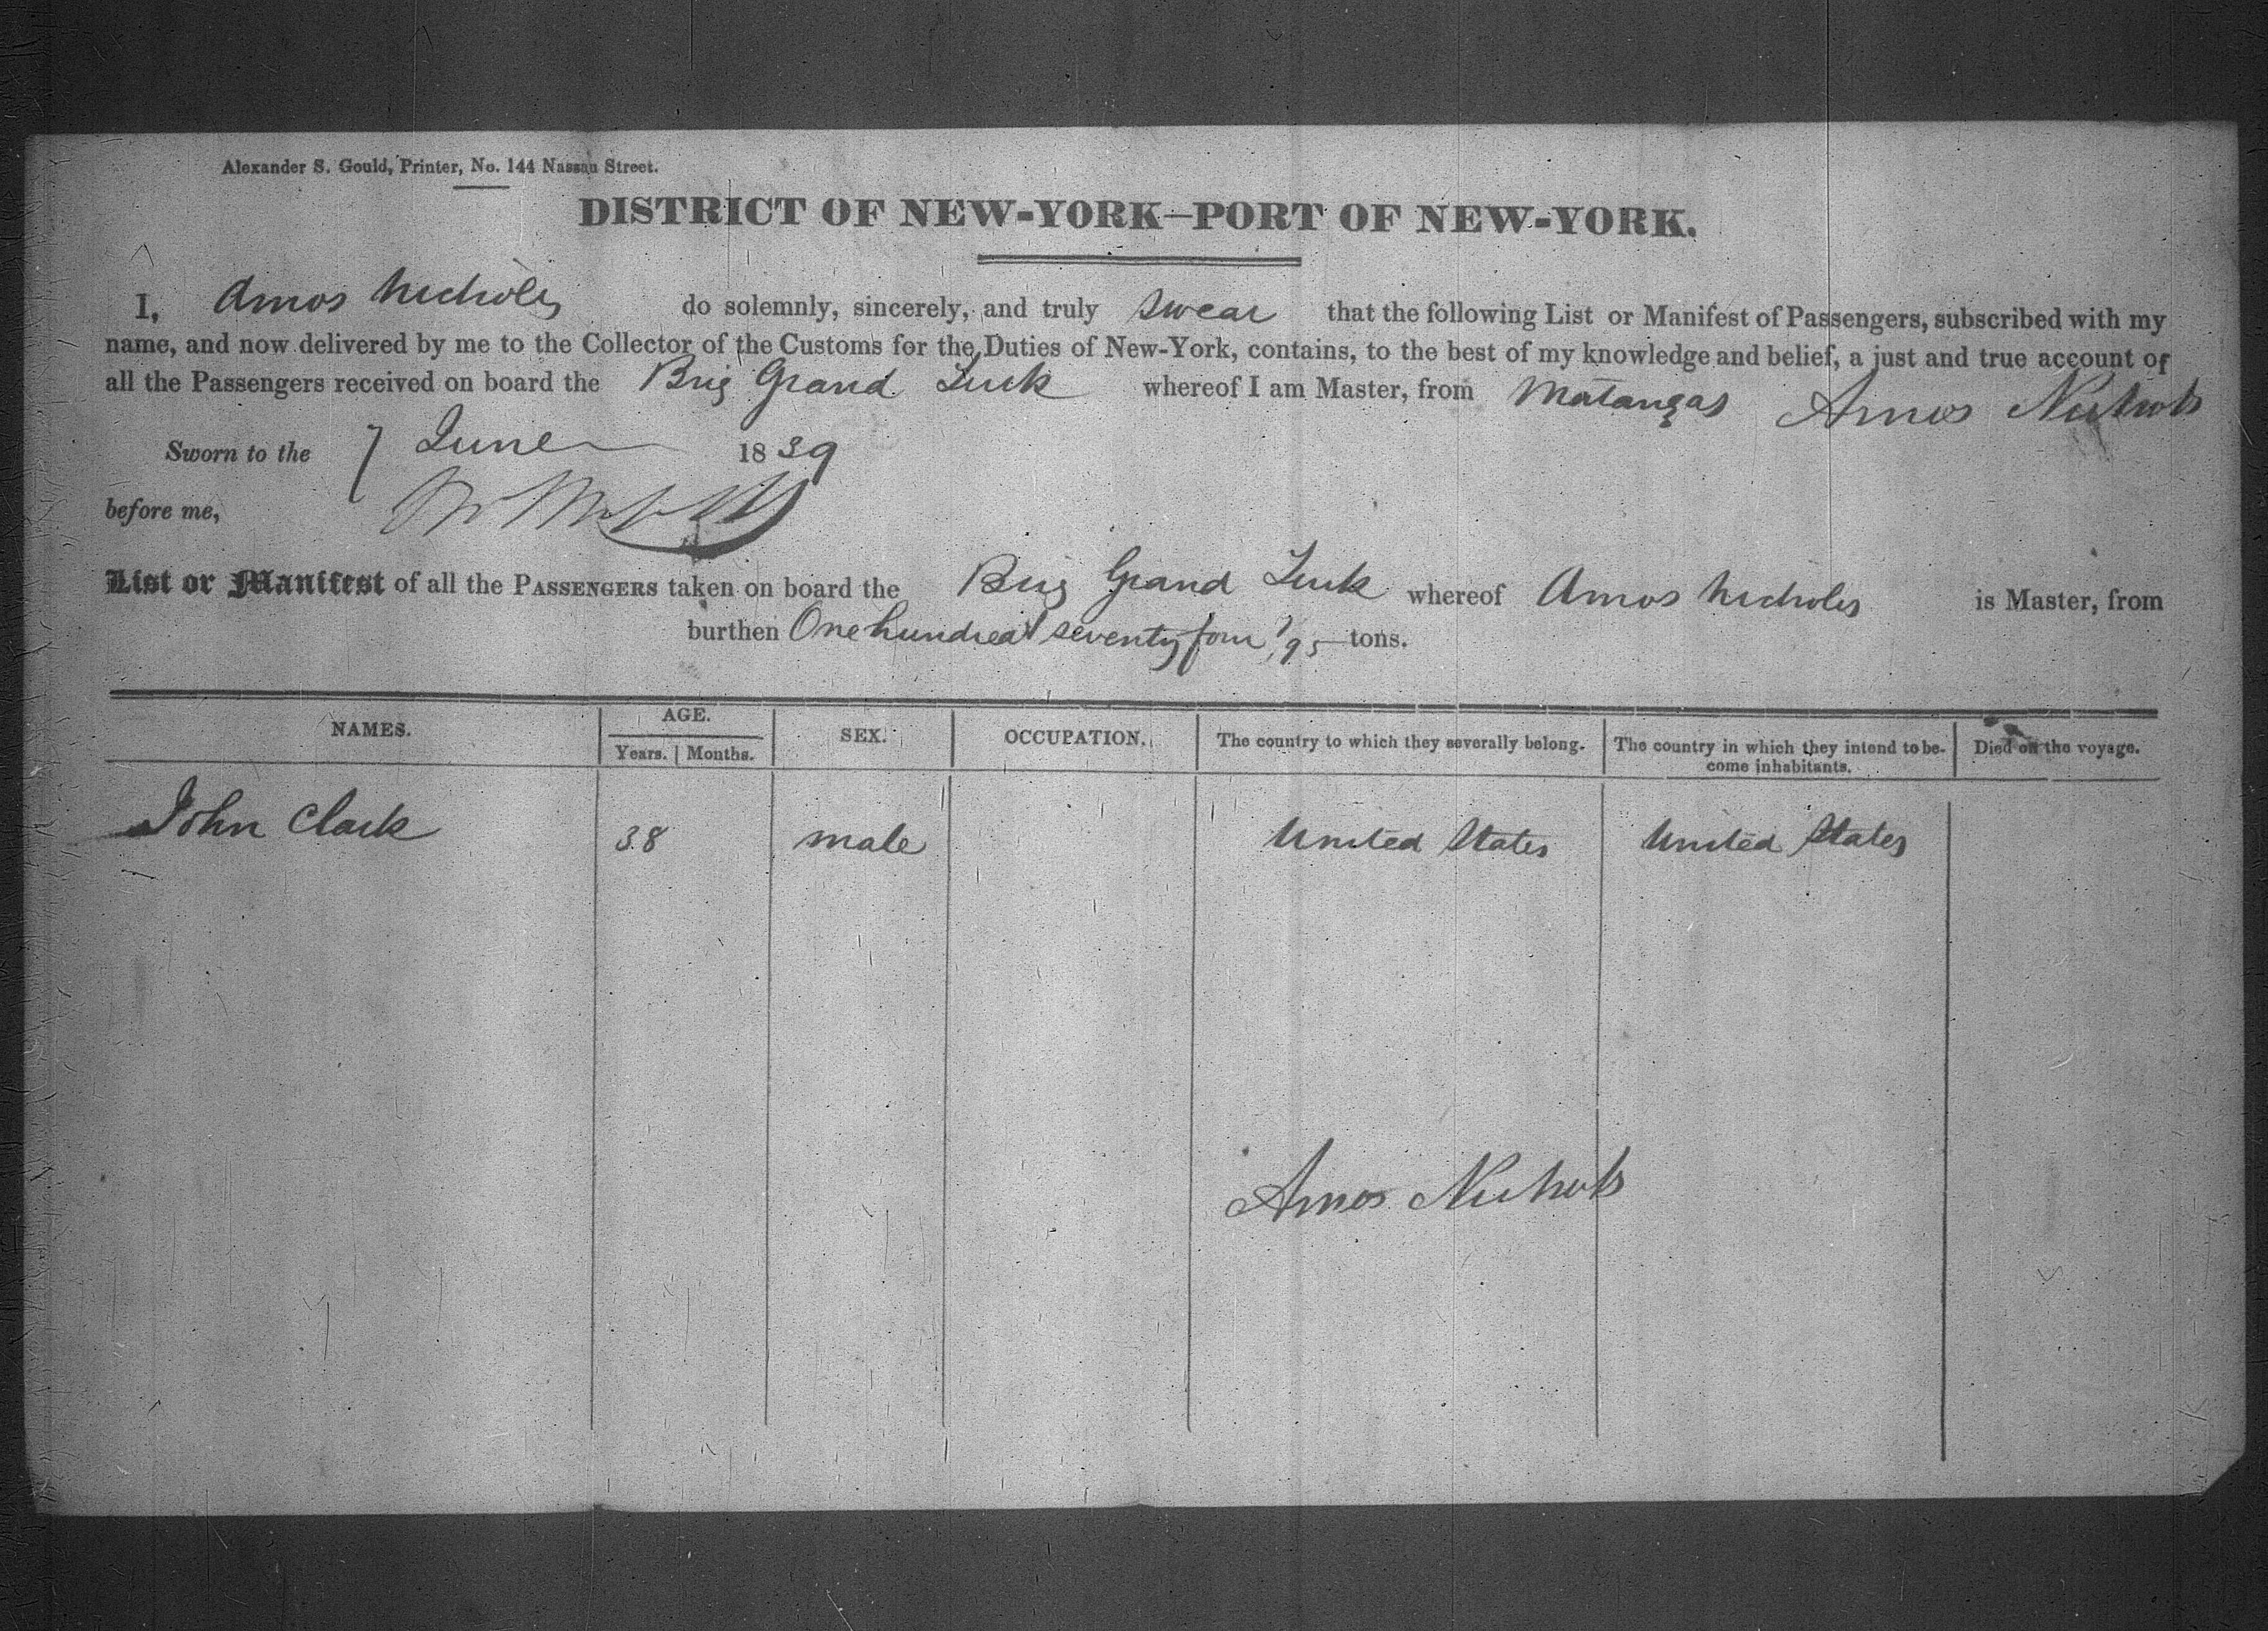 Alexander S. Gould, Printer, No. 144 Nassau Street.
DISTRICT OF NEW-YORK—PORT OF NEW-YORK.
I, Amos Nichols do solemnly, sincerely, and truly swear that the following List or Manifest of Passengers, subscribed with my
name, and now delivered by me to the Collector of the Customs for the Duties of New-York, contains, to the best of my knowledge and belief, a just and true account of
all the Passengers received on board the Brig Grand Turk whereof I am Master, from Matanzas Amos Nichols
Sworn to the 7 June 1839
before me,
List or Manifest of all the PASSENGERS taken on board the Brig Grand Turk whereof Amos Nichols is Master, from
burthen One hundred seventy four /95 tons.
NAMES. AGE. SEX. OCCUPATION. The country to which they severally belong. The country in which they intend to be- Died on the voyage.
Years. Months. come inhabitants.
John Clark 38 male United States United States
Amos Nichols